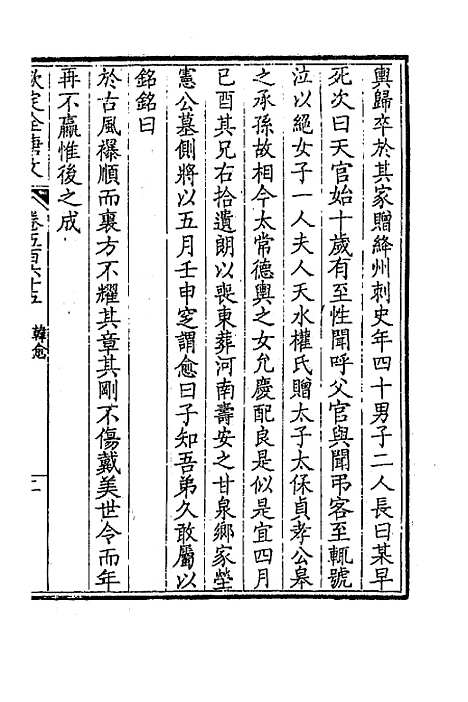 輿歸卒於其家贈絳州刺史年四十男子二人長曰某早
死次曰天官始十歲有至性聞呼父官與聞弔客至輒號
泣以絕女子一人夫人天水權氏贈太子太保貞孝公皋
之承孫故相今太常德輿之女允慶配良是似是宜四月
已酉其兄右拾遺朗以喪東葬河南壽安之甘泉鄉家塋
憲公墓側將以五月壬申窆謂愈曰子知吾弟久敢屬以
銘銘曰
於古風襮順而裏方不耀其章其剛不傷戴美世令而年
再不贏惟後之成
欽定全唐文 卷五百六十五 韓愈 二